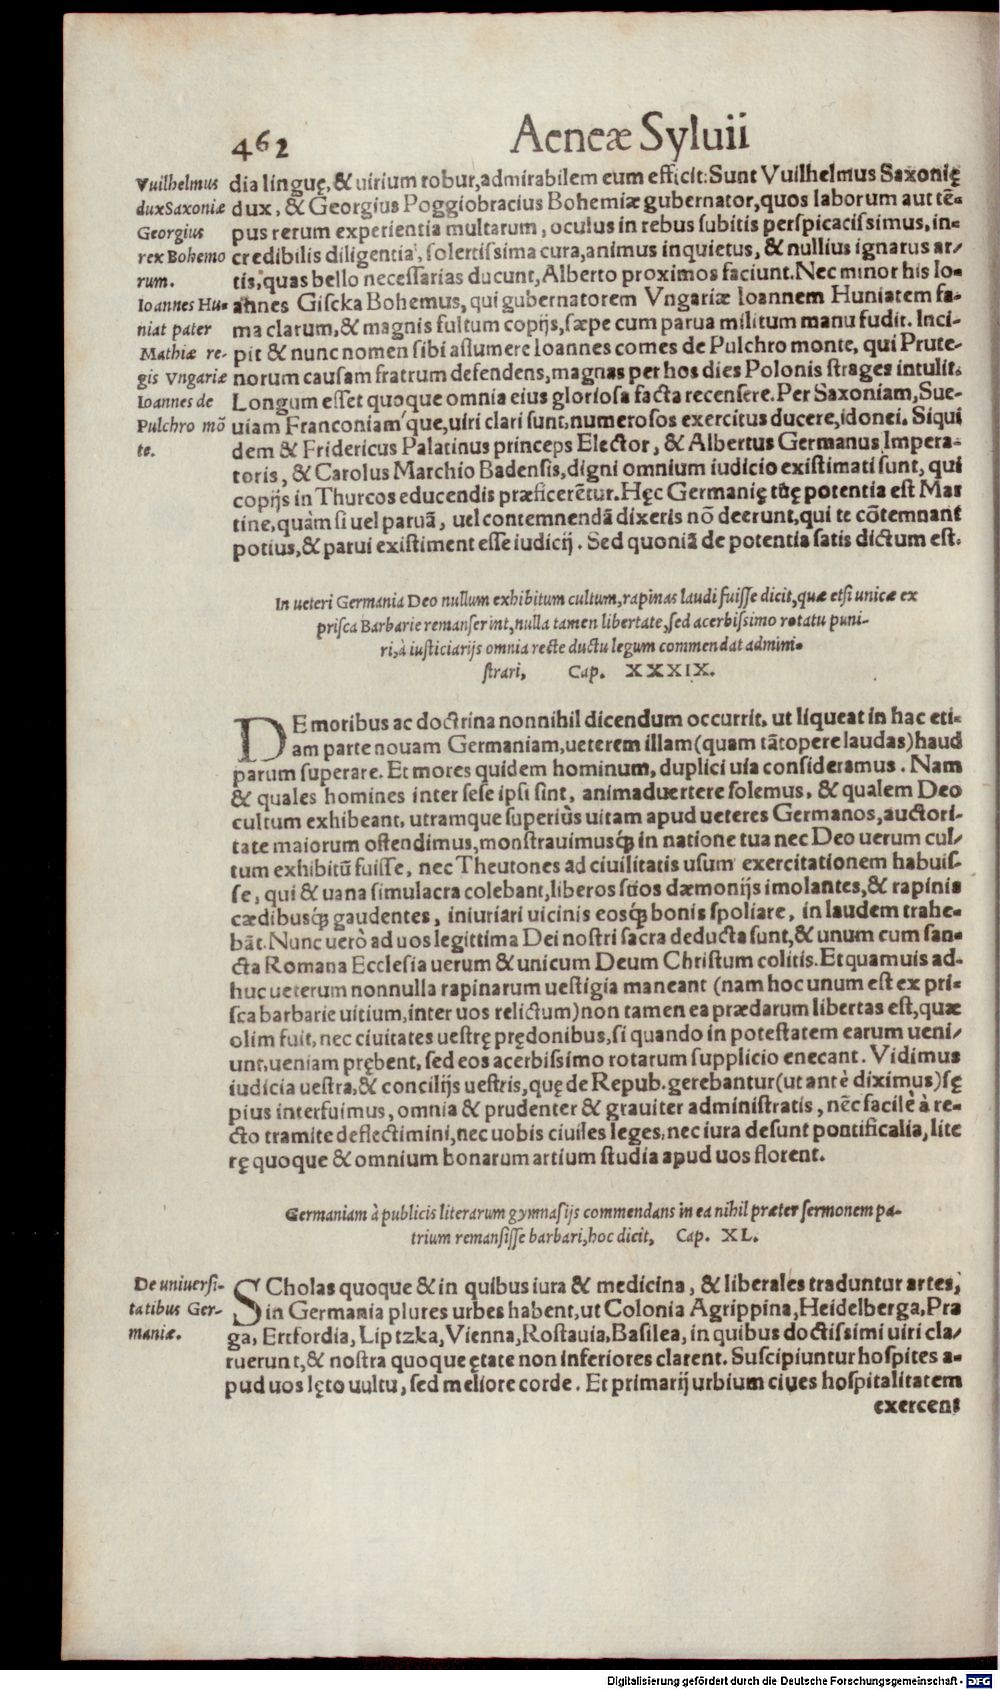 462 Aeneæ Syluii
Vuilhelmus
dux Saxoniæ
Georgius
rex Bohemo
rum.
Ioannes Hu-
niat pater
Mathiæ re-
gis Vngariæ
Ioannes de
Pulchro mõ
te.
dia linguę, & uirium robur, admirabilem eum efficit. Sunt Vuilhelmus Saxonię
dux, & Georgius Poggiobracius Bohemiæ gubernator, quos laborum aut tē-
pus rerum experientia multarum, oculus in rebus subitis perspicacissimus, in-
credibilis diligentia, solertissima cura, animus inquietus, & nullius ignarus ar/
tis, quas bello necessarias ducunt, Alberto proximos faciunt. Nec minor his Io-
annes Gischa Bohemus, qui gubernatorem Vngariæ Ioannem Huniatem fa-
ma clarum, & magnis fultum copijs, sæpe cum parua militum manu fudit. Inci-
pit & nunc nomen sibi assumere Ioannes comes de Pulchro monte, qui Prute-
norum causam fratrum defendens, magnas per hos dies Polonis strages intulit.
Longum esset quoque omnia eius gloriosa facta recensere. Per Saxoniam, Sue-
uiam Franconiam´que, uiri clari sunt, numerosos exercitus ducere, idonei. Siqui
dem & Fridericus Palatinus princeps Elector, & Albertus Germanus Impera-
toris, & Carolus Marchio Badensis, digni omnium iudicio existimati sunt, qui
copijs in Thurcos educendis præficerētur. Hęc Germanię tuę potentia est Mar
tine, quàm si uel paruā, uel contemnendā dixeris nō deerunt, qui te cōtemnant
potius, & parui existiment esse iudicij. Sed quoniā de potentia satis dictum est.
In ueteri Germania Deo nullum exhibitum cultum, rapinas laudi fuisse dicit, quæ etsi unicæ ex
prisca Barbarie remanserint, nulla tamen libertate, sed acerbissimo rotatu puni-
ri, à iusticiarijs omnia recte ductu legum commendat admini-
strari, Cap. XXXIX.
DE moribus ac doctrina nonnihil dicendum occurrit, ut liqueat in hac eti-
am parte nouam Germaniam, ueterem illam (quam tātopere laudas) haud
parum superare. Et mores quidem hominum, duplici uia consideramus. Nam
& quales homines inter sese ipsi sint, animaduertere solemus, & qualem Deo
cultum exhibeant, utramque superiùs uitam apud ueteres Germanos, auctori-
tate maiorum ostendimus, monstrauimusq́; in natione tua nec Deo uerum cul/
tum exhibitū fuisse, nec Theutones ad ciuilitatis usum exercitationem habuis-
se, qui & uana simulacra colebant, liberos suos dæmonijs imolantes, & rapinis
cædibusq́; gaudentes, iniuriari uicinis eosq́; bonis spoliare, in laudem trahe-
bāt. Nunc uerò ad uos legittima Dei nostri sacra deducta sunt, & unum cum san-
cta Romana Ecclesia uerum & unicum Deum Christum colitis. Et quamuis ad-
huc ueterum nonnulla rapinarum uestigia maneant (nam hoc unum est ex pri-
sca barbarie uitium, inter uos relictum) non tamen ea prædarum libertas est, quæ
olim fuit, nec ciuitates uestrę prędonibus, si quando in potestatem earum ueni/
unt, ueniam prębent, sed eos acerbissimo rotarum supplicio enecant. Vidimus
iudicia uestra, & concilijs uestris, quę de Repub. gerebantur (ut antè diximus) sę
pius interfuimus, omnia & prudenter & grauiter administratis, nēc facilè à re-
cto tramite deflectimini, nec uobis ciuiles leges, nec iura desunt pontificalia, lite
rę quoque & omnium bonarum artium studia apud uos florent.
Germaniam à publicis literarum gymnasijs commendans in ea nihil præter sermonem pa-
trium remansisse barbari, hoc dicit, Cap. XL.
De uniuersi-
tatibus Ger-
maniæ.
SCholas quoque & in quibus iura & medicina, & liberales traduntur artes,
in Germania plures urbes habent, ut Colonia Agrippina, Heidelberga, Pra
ga, Ertfordia, Liptzka, Vienna, Rostauia, Basilea, in quibus doctissimi uiri cla/
ruerunt, & nostra quoque ętate non inferiores clarent. Suscipiuntur hospites a-
pud uos lęto uultu, sed meliore corde. Et primarij urbium ciues hospitalitatem
exercent
Digitalisierung gefördert durch die Deutsche Forschungsgemeinschaft - DFG